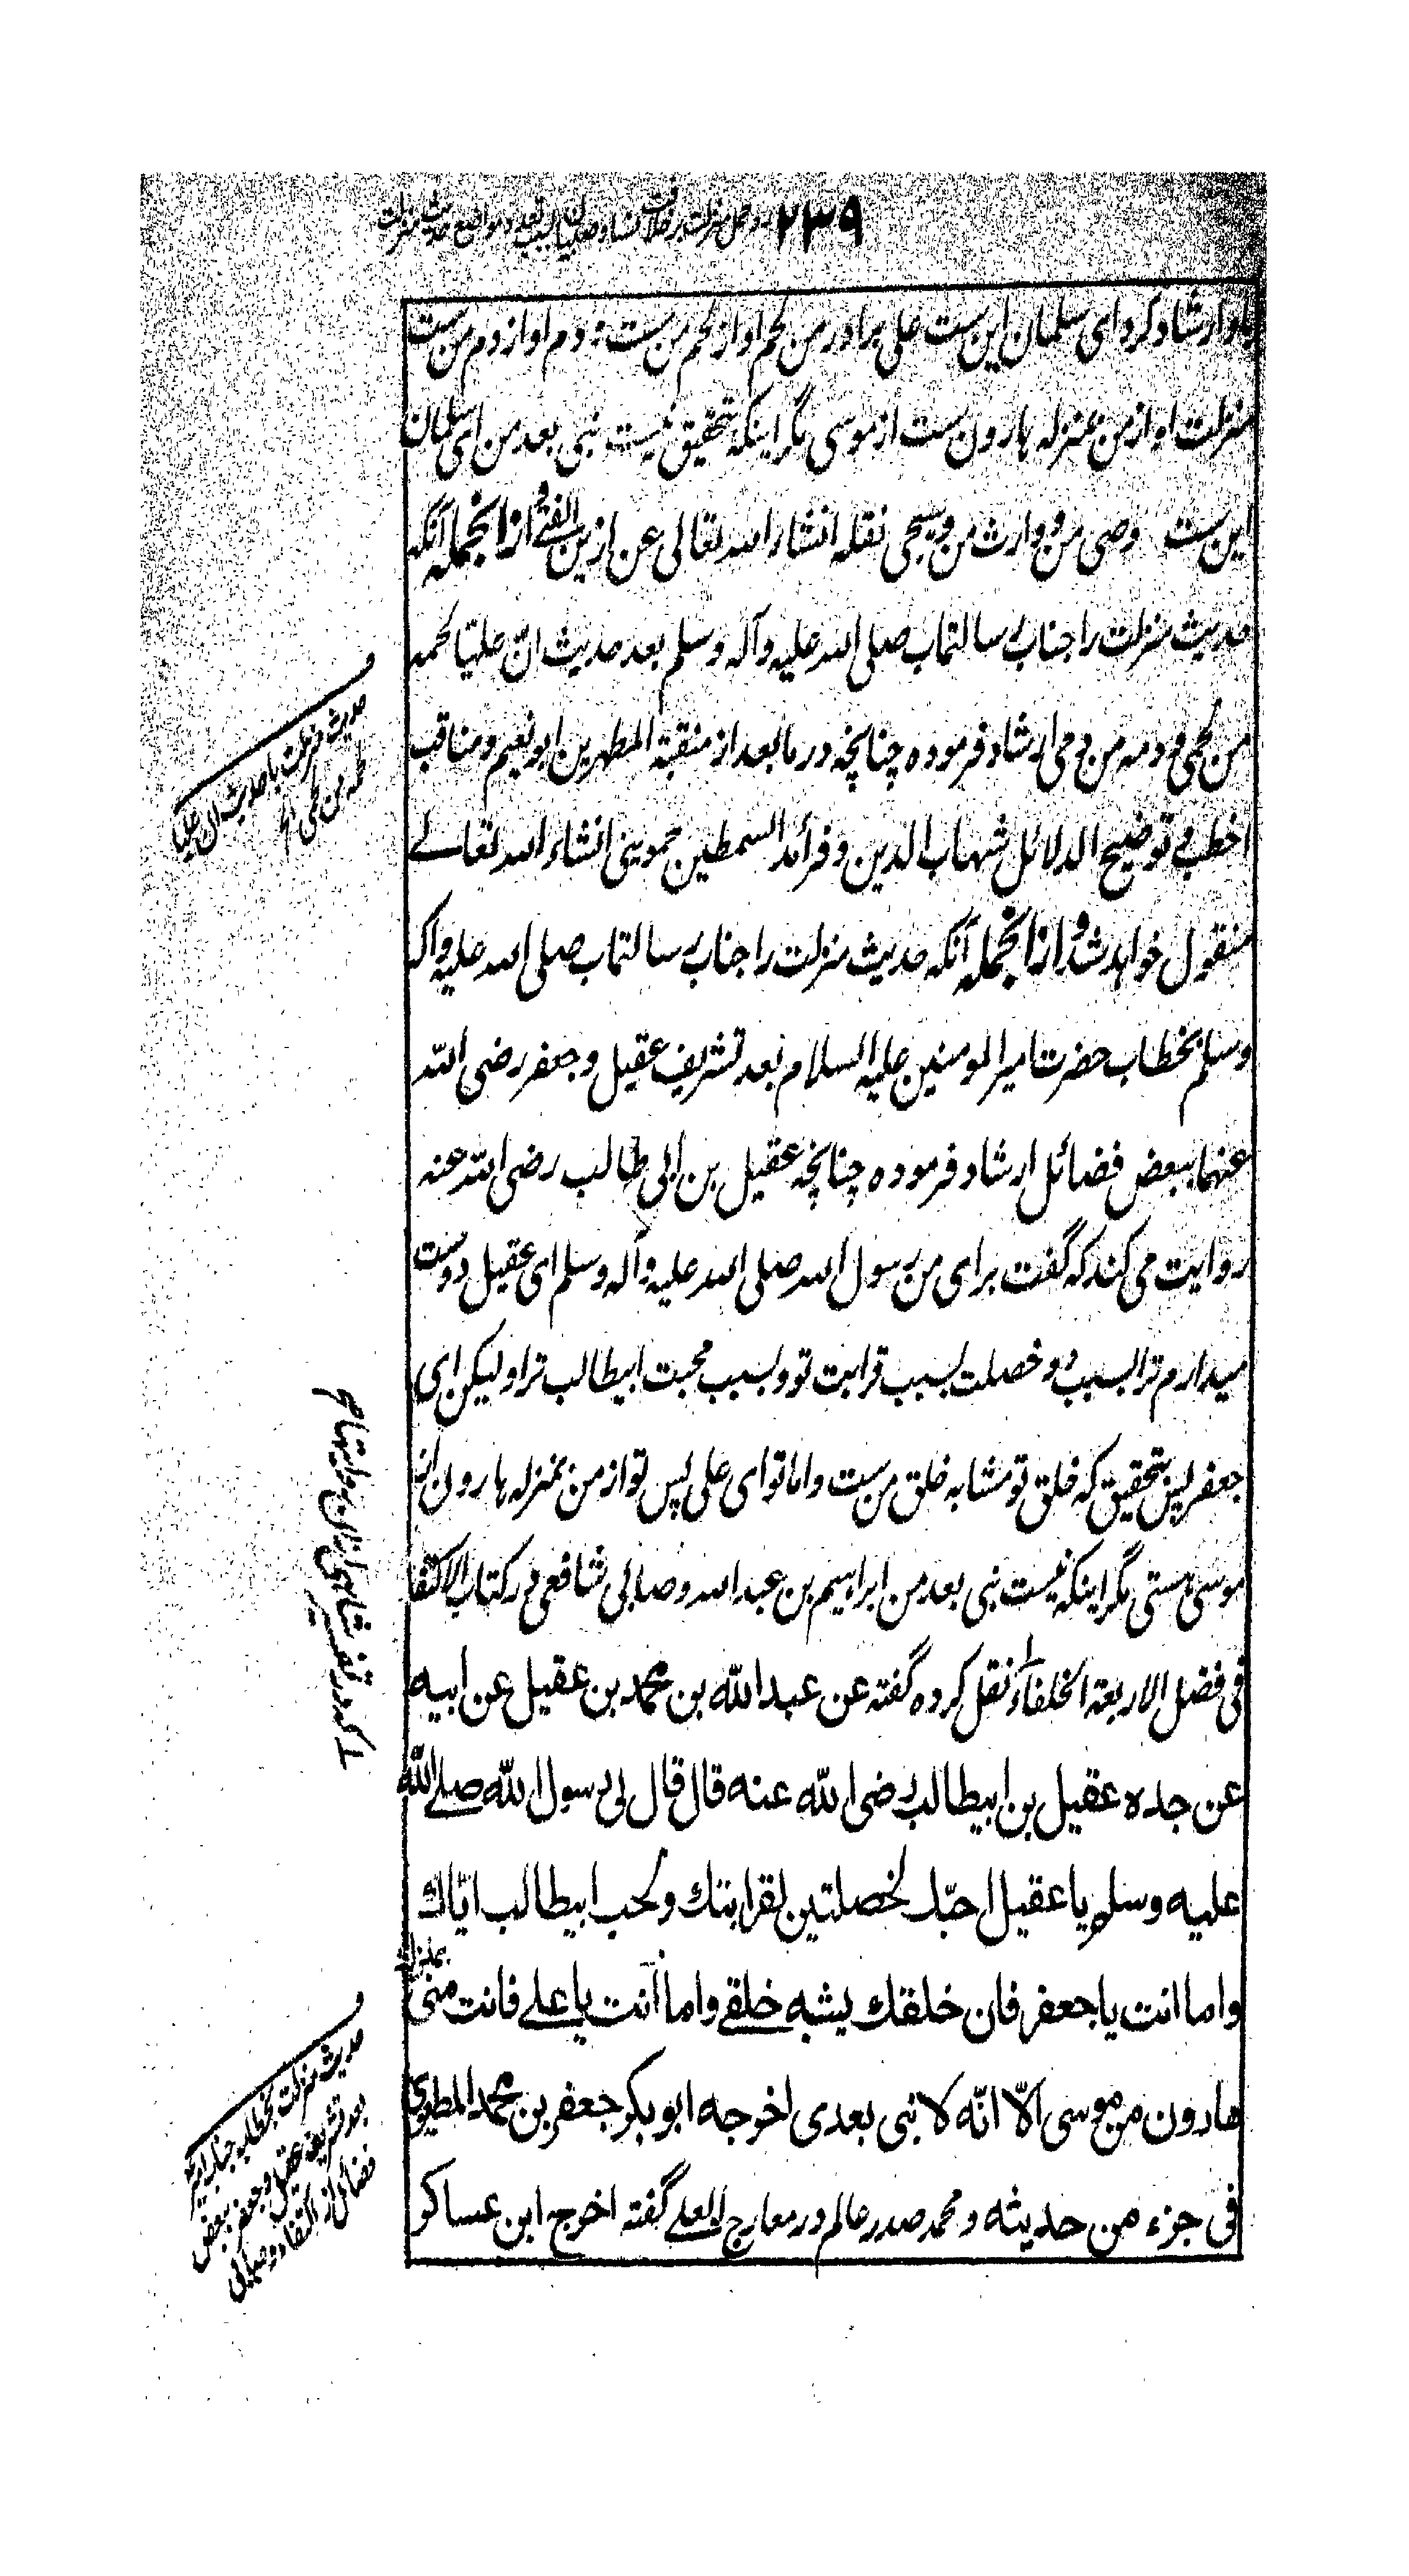 ٢٣٩
باو ارشاد کرد ای سلمان این ست علی برادر من لحم او از لحم من ست و دم او از دم من ست
منزلت او از من بمنزله هارون ست از موسی مگر اینکه بتحقیق نیست نبی بعد من ای سلمان
این ست وصی من و وارث من و سیجی نقله انشاء الله تعالی عن ازین الفتی و از انجمله آنکه
حدیث منزلت را جناب رسالتماب صلی الله علیه و آله وسلم بعد حدیث ان علیا لحمه
من لحمی و دمه من دمی ارشاد فرموده چنانچه در ما بعد از منقبة المطهرین ابو نعیم و مناقب
اخطب و توضیح الدلائل شهاب الدین و فرائد السمطین حموینی انشاء الله تعالے
منقول خواهد شد و از انجمله آنکه حدیث منزلت را جناب رسالتماب صلی الله علیه و آله
وسلم بخطاب حضرت امیر المومنین علیه السلام بعد تشریف عقیل و جعفر رضی الله
عنهما ببعض فضائل ارشاد فرموده چنانچه عقیل بن ابی طالب رضی الله عنه
روایت می کند که گفت برای من رسول الله صلی الله علیه و آله وسلم ای عقیل دوست
میدارم ترا بسبب دو خصلت بسبب قرابت تو و بسبب محبت ابیطالب ترا و لیکن ای
جعفر پس بتحقیق که خلق تو مشابه خلق من ست و اما تو ای علی پس تو از من بمنزله هارون از
موسی هستی مگر اینکه نیست نبی بعد من ابراهیم بن عبد الله وصابی شافعی در کتاب الاکتفا
فی فضل الاربعة الخلفاء نقل کرده گفته عن عبد الله بن محمد بن عقیل عن ابیه
عن جده عقیل بن ابیطالب رضی الله عنه قال قال لی رسول الله صلے الله
علیه وسلم یا عقیل احبّک لخصلتین لقرابتك و لحب ابیطالب ایّاك
و اما انت یا جعفر فان خلقك یشبه خلقے و اما انت یا علے فانت منی بمنزلة
هارون من موسی الّا انّه لا نبی بعدی اخرجه ابو بکر جعفر بن محمد المطیری
فی جزء من حدیثه و محمد صدر عالم در معارج العلے گفته اخرج ابن عساکر
حدیث منزلت با حدیث ان علیا
لحمه من لحمی الخ
حدیث منزلت بخطاب جناب امیر
بعد تشریف عقیل و جعفر ببعض
فضائل از اکتفاء وصابی